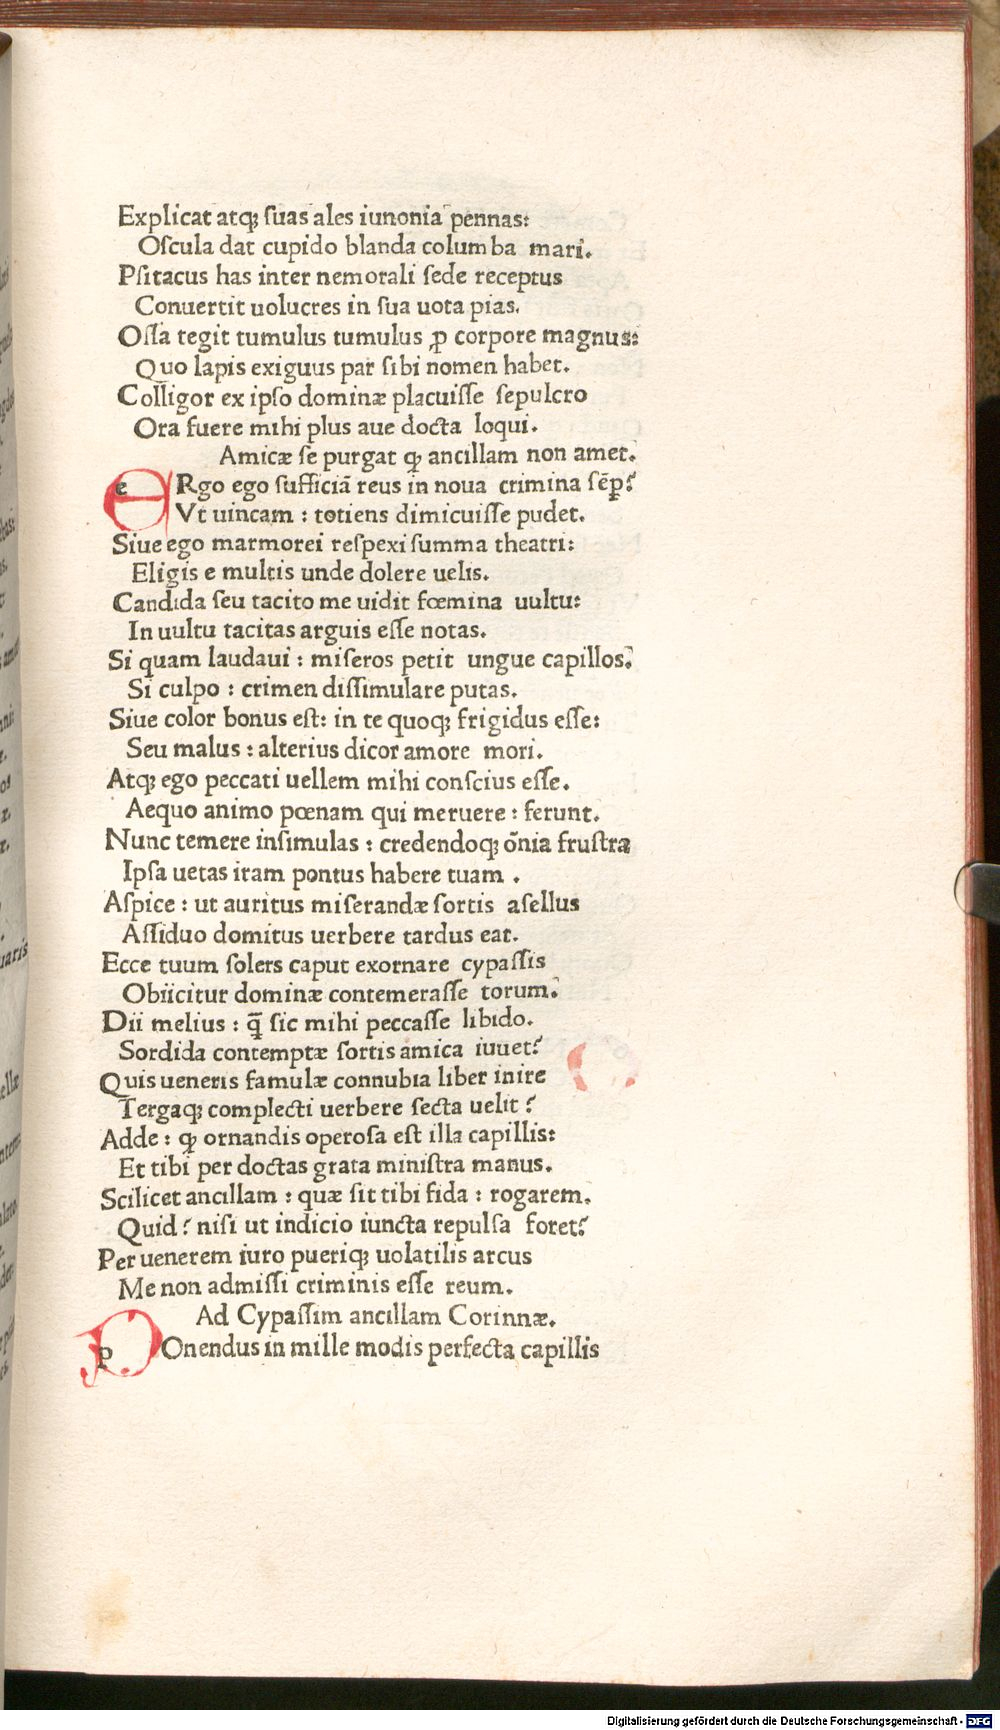 Explicat atqꝫ ſuas ales iunonia pennas:
Oſcula dat cupido blanda columba mari.
Pſitacus has inter nemorali ſede receptus
Conuertit uolucres in ſua uota pias.
Oſſa tegit tumulus tumulus ꝓ corpore magnus:
Quo lapis exiguus par ſibi nomen habet.
Colligor ex ipſo dominæ placuiſſe ſepulcro
Ora fuere mihi plus aue docta loqui.
Amicæ ſe purgat ꝙ ancillam non amet.
eRgo ego ſufficiā reus in noua crimina ſēꝑ?
Vt uincam : totiens dimicuiſſe pudet.
Siue ego marmorei reſpexi ſumma theatri:
Eligis e multis unde dolere uelis.
Candida ſeu tacito me uidit fœmina uultu:
In uultu tacitas arguis eſſe notas.
Si quam laudaui : miſeros petit ungue capillos.
Si culpo : crimen diſſimulare putas.
Siue color bonus eſt: in te quoqꝫ frigidus eſſe:
Seu malus : alterius dicor amore mori.
Atqꝫ ego peccati uellem mihi conſcius eſſe.
Aequo animo pœnam qui meruere : ferunt.
Nunc temere inſimulas : credendoqꝫ oīa fruſtra
Ipſa uetas iram pontus habere tuam .
Aſpice : ut auritus miſerandæ ſortis aſellus
Aſſiduo domitus uerbere tardus eat.
Ecce tuum ſolers caput exornare cypaſſis
Obiicitur dominæ contemeraſſe torum.
Dii melius : q̄ ſic mihi peccaſſe libido.
Sordida contemptæ ſortis amica iuuet?
Quis ueneris famulæ connubia liber inire
Tergaqꝫ complecti uerbere ſecta uelit?
Adde : ꝙ ornandis operoſa eſt illa capillis:
Et tibi per doctas grata miniſtra manus.
Scilicet ancillam : quæ ſit tibi fida : rogarem.
Quid? niſi ut indicio iuncta repulſa foret?
Per uenerem iuro pueriqꝫ uolatilis arcus
Me non admiſſi criminis eſſe reum.
Ad Cypaſſim ancillam Corinnæ.
pOnendus in mille modis perfecta capillis
Digitalisierung gefördert durch die Deutsche Forschungsgemeinschaft - DFG